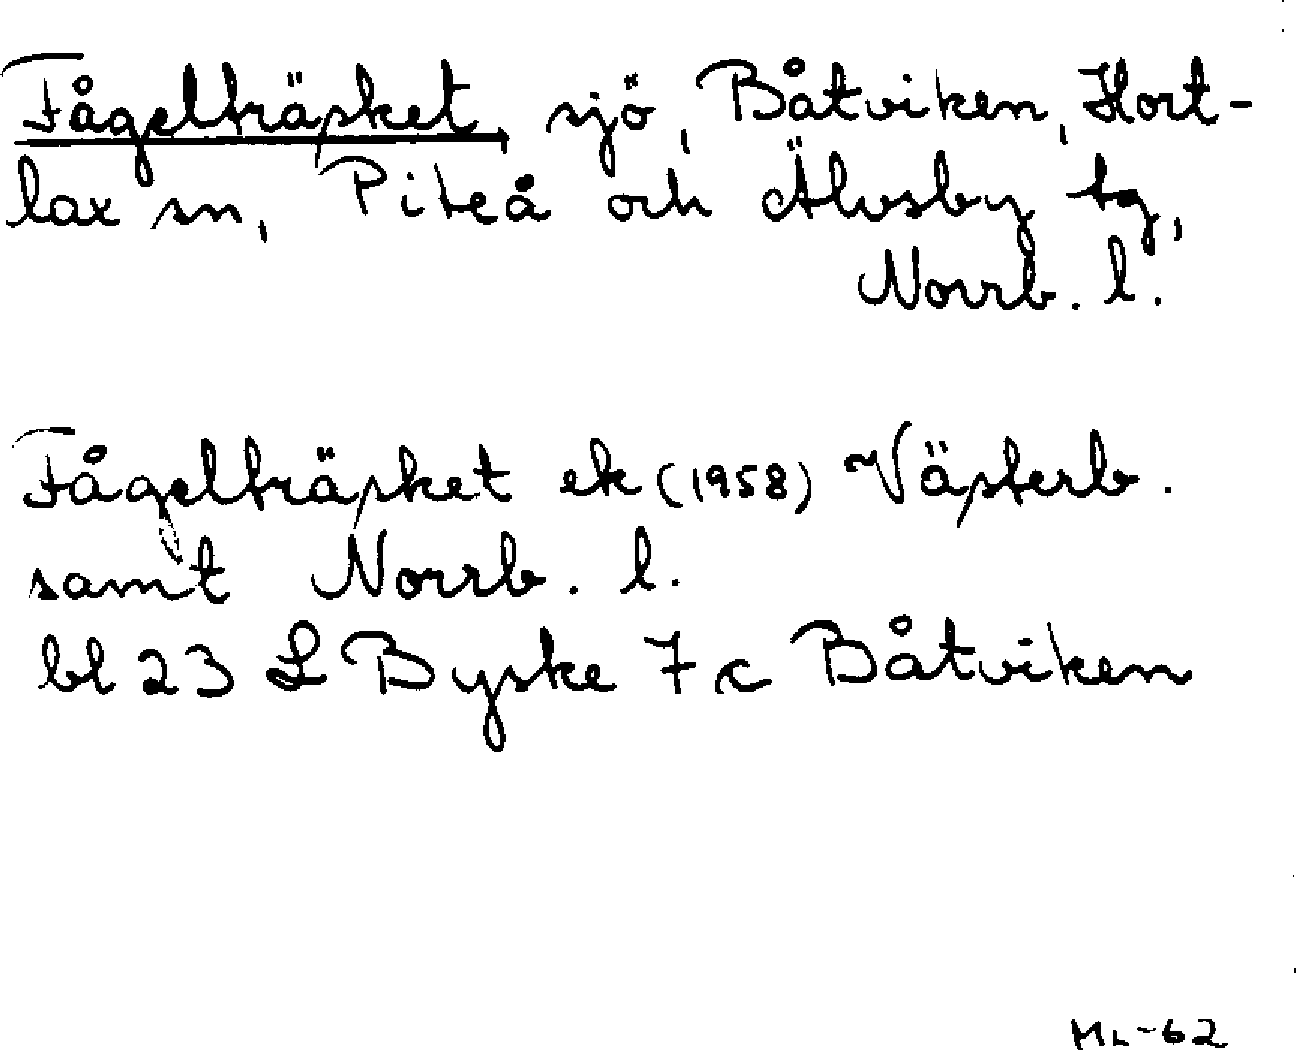 Fågelträsket, sjö, Båtviken, Hort-
lax sn, Piteå och Älvsby tg,
Norrb. l.
Fågelträsket ek (1958) Västerb.
samt Norrb. l.
bl 23 L Byske 7 c Båtviken
ML-62